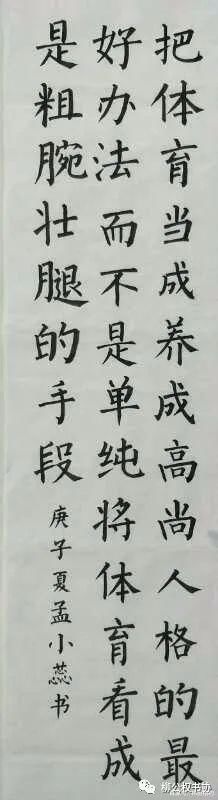 把体育当成养成高尚人格的最
好办法而不是单纯将体育看成
是粗腕壮腿的手段
庚子夏孟小蕊书
柳公权书协